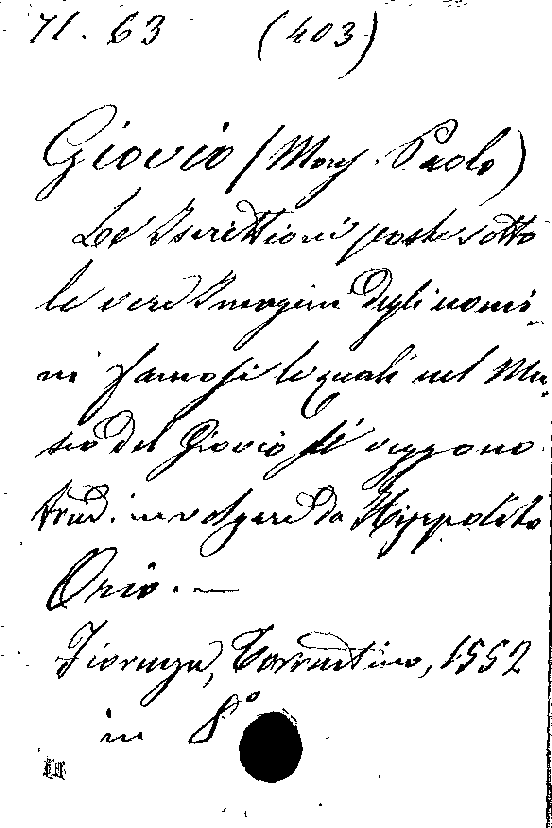 71. 63 (403)
Giovio (Mons. Paolo)
Le Iscrittioni poste sotto
le vere Imagini degli uomi-
ni famosi le quali nel Mu-
seo del Giovio si veggono
trad. in volgare da Hippolito
Orio. —
Fiorenza, Torrentino, 1552
in 8°